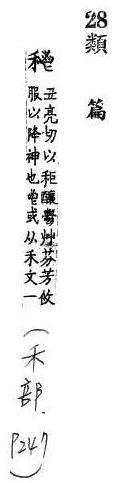 28
類篇
丑亮切以秬釀鬱艸芬芳攸
服以降神也鬯或从禾文一
(禾部 P247)